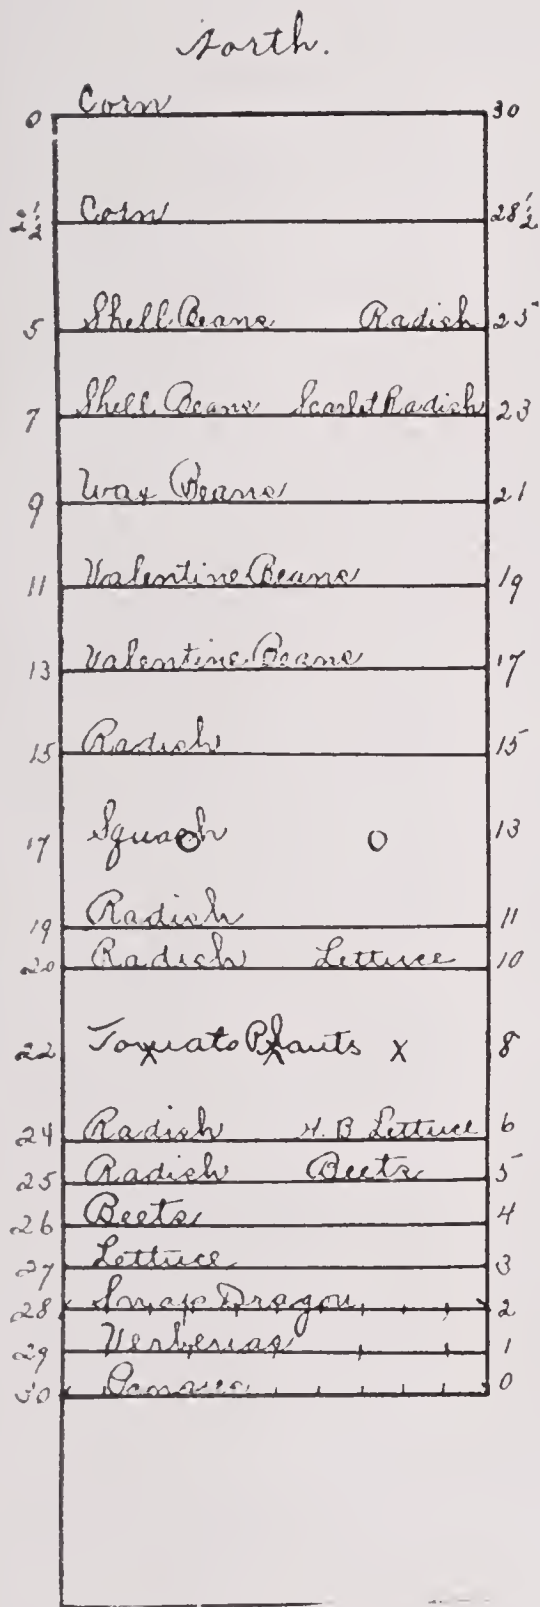 North.
0 Corn 30
2½ Corn 28½
5 Shell Beans Radish 25
7 Shell Beans Scarlet Radish 23
9 Wax Beans 21
11 Valentine Beans 19
13 Valentine Beans 17
15 Radish 15
17 Squash 13
19 Radish 11
20 Radish Lettuce 10
22 Tomato Plants X 8
24 Radish H. B Lettuce 6
25 Radish Beets 5
26 Beets 4
27 Lettuce 3
28 Snap Dragon 2
29 Verbenas 1
30 0